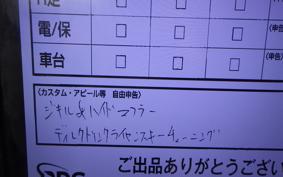 電/保 □ □ □
車台 □ □ □
(カスタム・アピール等 自由申告)
ジキル&ハイド マフラー
ディレクトリンクライセンスキーチューニング
ご出品ありがとうござい